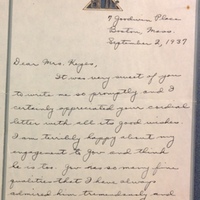 9 Goodwin Place
Boston, Mass.
September 2, 1937
Dear Mrs. Keyes,
It was very sweet of you
to write me so promptly and I
certainly appreciated your cordial
letter with all its good wishes.
I am terribly happy about my
engagement to Jov and think
he is too. Jov has so many fine
qualities that I have always
admired him tremendously and